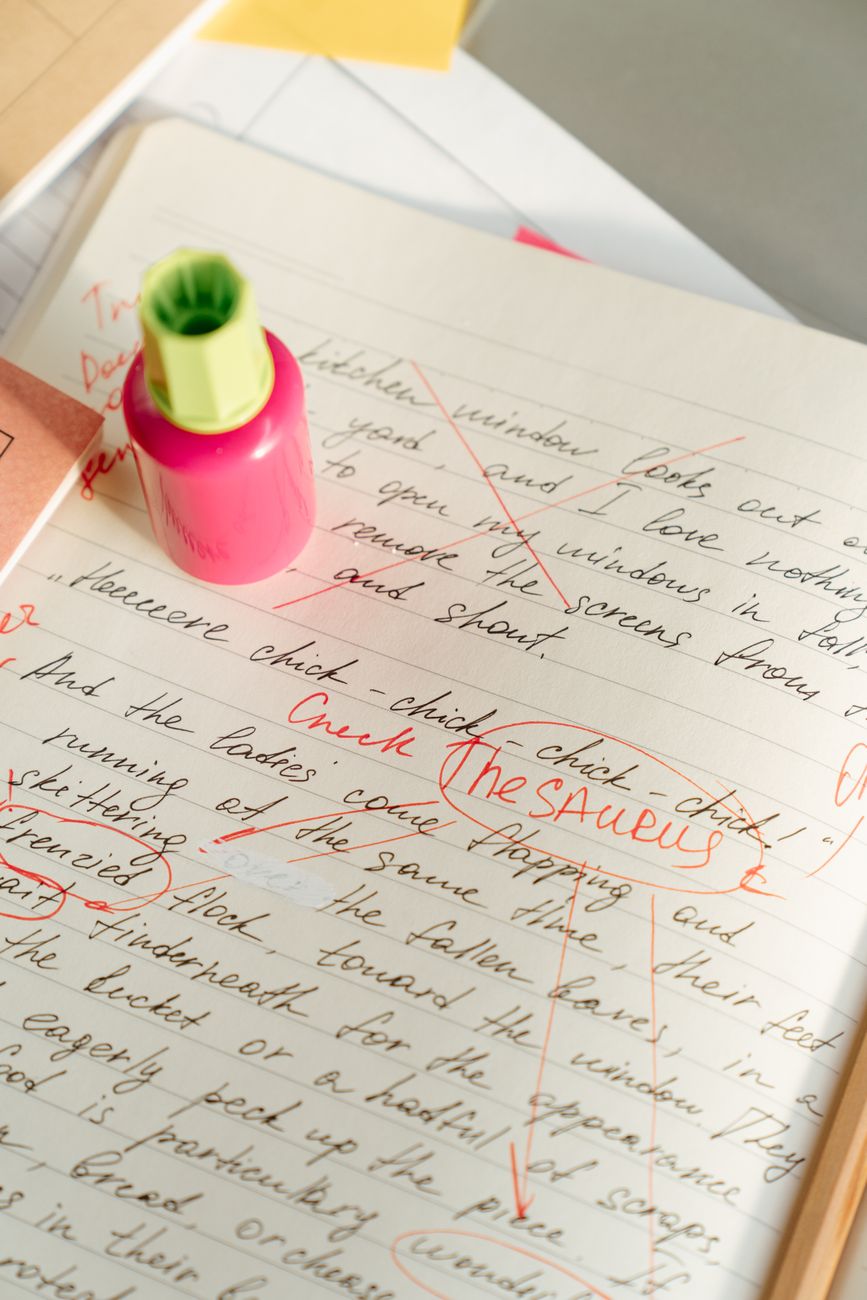 kitchen window looks out
yard, and I love nothing
to open my windows in fall,
remove the screens from
, and shout.
„Heeeeere chick - chick - chick - chick!"
Check THeSAURUS
And the ladies' come flapping and
running at the same time, their feet
skittering over the fallen leaves, in a
frenzied flock, toward the window. They
wait tinderneath for the appearance
the bucket or a hatful of scraps,
eagerly peck up the piece. If
is particulary
bread, or cheese
in their